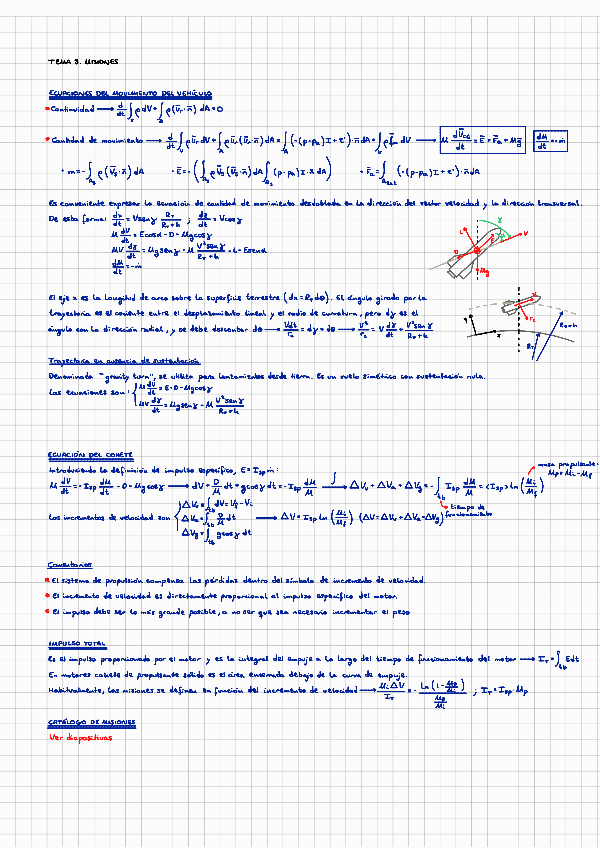 TEMA 3. MISIONES
ECUACIONES DEL MOVIMIENTO DEL VEHÍCULO
* Continuidad → d/dt ∫ᵥ ρ dV + ∫_A ρ(v̄ᵣ·n̄) dA = 0
* Cantidad de movimiento → d/dt ∫ᵥ ρ v̄ᵣ dV + ∫_A ρ v̄ᵣ (v̄ᵣ·n̄) dA = ∫_A (-(p-pₐ)I + τ')·n̄ dA + ∫ᵥ ρ f̄ₘ dV → M dv̄_CG/dt = Ē + F̄ₐ + Mḡ
dM/dt = -ṁ
Es conveniente expresar la ecuación de cantidad de movimiento desdoblada en la dirección del vector velocidad y la dirección transversal.
De esta forma: dx/dt = V sen γ R_T/(R_T + h) ; dz/dt = V cos γ
M dV/dt = E cos α - D - Mg cos γ
MV dγ/dt = Mg sen γ - M V² sen γ/(R_T + h) - L - E sen α
dM/dt = -ṁ
El eje x es la longitud de arco sobre la superficie terrestre (dx = R_T dθ). El ángulo girado por la
trayectoria es el cociente entre el desplazamiento lineal y el radio de curvatura, pero dγ es el
ángulo con la dirección radial, y se debe descontar dθ →
Trayectoria en ausencia de sustentación
Denominada "gravity turn", se utiliza para lanzamientos desde tierra. Es un vuelo simétrico con sustentación nula.
Las ecuaciones son: M dV/dt = E - D - Mg cos γ
MV dγ/dt = Mg sen γ - M V² sen γ/(R_T + h)
ECUACIÓN DEL COHETE
masa propulsante:
M_P = M_i - M_f
Introduciendo la definición de impulso específico, E = I_sp ṁ:
M dV/dt = -I_sp dM/dt - D - Mg cos γ → dV + D/M dt + g cos γ dt = -I_sp dM/M → ΔVᵤ + ΔVₐ + ΔV_g = -∫_tb I_sp dM/M = <I_sp> ln (M_i/M_f)
tiempo de
funcionamiento
Los incrementos de velocidad son
ΔVᵤ = ∫_tb dV = V_f - V_i
ΔVₐ = ∫_tb D/M dt → ΔV = I_sp ln (M_i/M_f) (ΔV = ΔVᵤ + ΔVₐ + ΔV_g)
ΔV_g = ∫_tb g cos γ dt
Comentarios
* El sistema de propulsión compensa las pérdidas dentro del símbolo de incremento de velocidad.
* El incremento de velocidad es directamente proporcional al impulso específico del motor.
* El impulso debe ser lo más grande posible, a no ser que sea necesario incrementar el peso
IMPULSO TOTAL
Es el impulso proporcionado por el motor y es la integral del empuje a lo largo del tiempo de funcionamiento del motor → I_T = ∫_tb E dt
En motores cohete de propulsante sólido es el área encerrada debajo de la curva de empuje.
Habitualmente, las misiones se definen en función del incremento de velocidad → M_i ΔV/I_T = - ln(1 - M_P/M_i)/(M_P/M_i) ; I_T = I_sp·M_P
CATÁLOGO DE MISIONES
Ver diapositivas